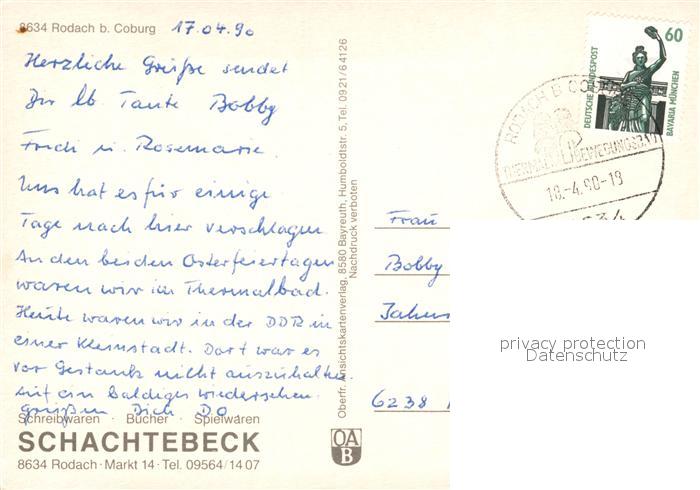 8634 Rodach b. Coburg 17.04.90
Herzliche Grüße sendet
Dir lb. Tante Bobby
u. Rosemarie
Uns hat es für einige
Tage nach hier verschlagen
An den beiden Osterfeiertagen
waren wir im Thermalbad.
Heute waren wir in der DDR in
einer Kleinstadt. Dort war es
vor Gestank nicht auszuhalten.
Auf ein baldiges wiedersehen.
grüßen Dich DO
Schreibwaren · Bücher · Spielwaren
SCHACHTEBECK
8634 Rodach · Markt 14 · Tel. 09564/1407
Oberfr. Ansichtskartenverlag, 8580 Bayreuth, Humboldtstr. 5, Tel. 0921/64126
Nachdruck verboten
OA
B
60
DEUTSCHE BUNDESPOST
BAVARIA MÜNCHEN
RODACH B CO
THERMAL BEWEGUNGSBAD
18.-4.90-19
Frau
Bobby
6238
privacy protection
Datenschutz